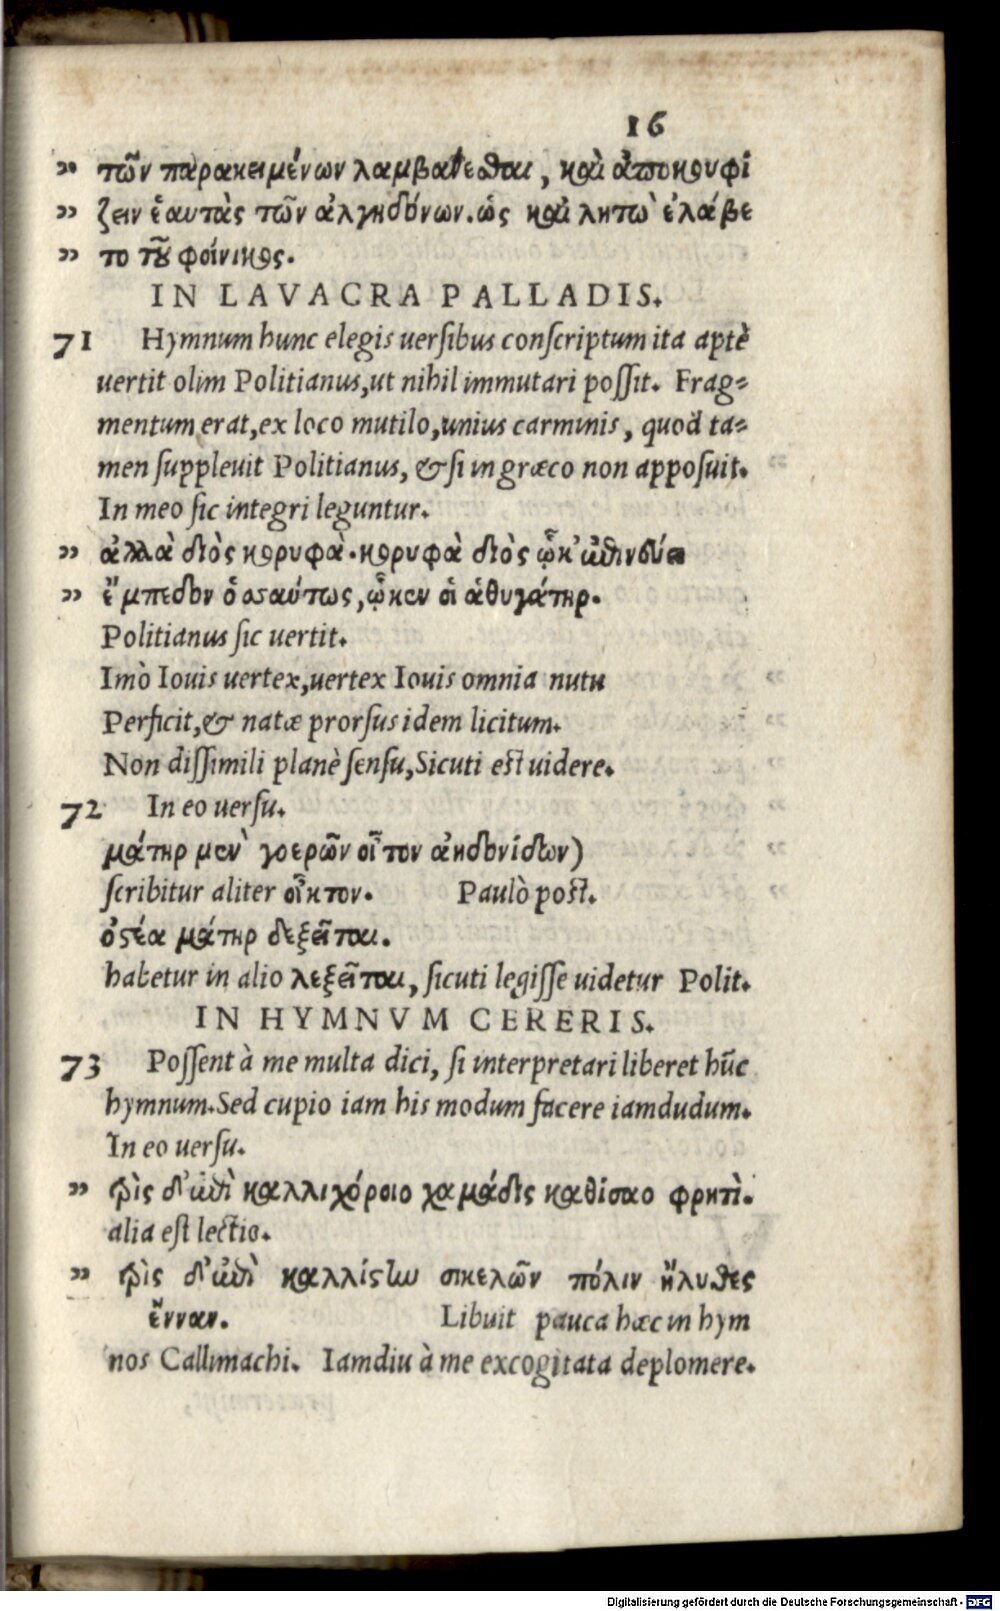 16
» τῶν παρακειμένων λαμβάνεσθαι, καὶ ἀποκουφί
» ζειν ἑαυτὰς τῶν ἀλγηδόνων. ὡς καὶ λητὼ ἐλάβε
» το τοῦ φοίνικος.
IN LAVACRA PALLADIS.
71 Hymnum hunc elegis uersibus conscriptum ita aptè
uertit olim Politianus, ut nihil immutari possit. Frag=
mentum erat, ex loco mutilo, unius carminis, quod ta=
men suppleuit Politianus, & si in græco non apposuit.
In meo sic integri leguntur.
» ἀλλὰ διὸς κορυφὰ. κορυφὰ διὸς ᾧκ' ἐπινεύει
» ἔμπεδον ὁσαύτως, ᾧκεν οἱ ἁ θυγάτηρ.
Politianus sic uertit.
Imò Iouis uertex, uertex Iouis omnia nutu
Perficit, & natæ prorsus idem licitum.
Non dissimili planè sensu, Sicuti est uidere.
72 In eo uersu.
μάτηρ μεν γοερῶν οἶτον ἀηδονίδων)
scribitur aliter οἶκτον. Paulò post.
ὀστέα μάτηρ δεξεῖται.
habetur in alio λεξεῖται, sicuti legisse uidetur Polit.
IN HYMNVM CERERIS.
73 Possent à me multa dici, si interpretari liberet hūc
hymnum. Sed cupio iam his modum facere iamdudum.
In eo uersu.
» τρὶς δ' ἐπὶ καλλιχόροιο χαμάδις καθίσαο φρητὶ.
alia est lectio.
» τρὶς δ' ἐπὶ καλλίστην σικελῶν πόλιν ἤλυθες
ἔνναν. Libuit pauca hæc in hym
nos Callimachi. Iamdiu à me excogitata deplomere.